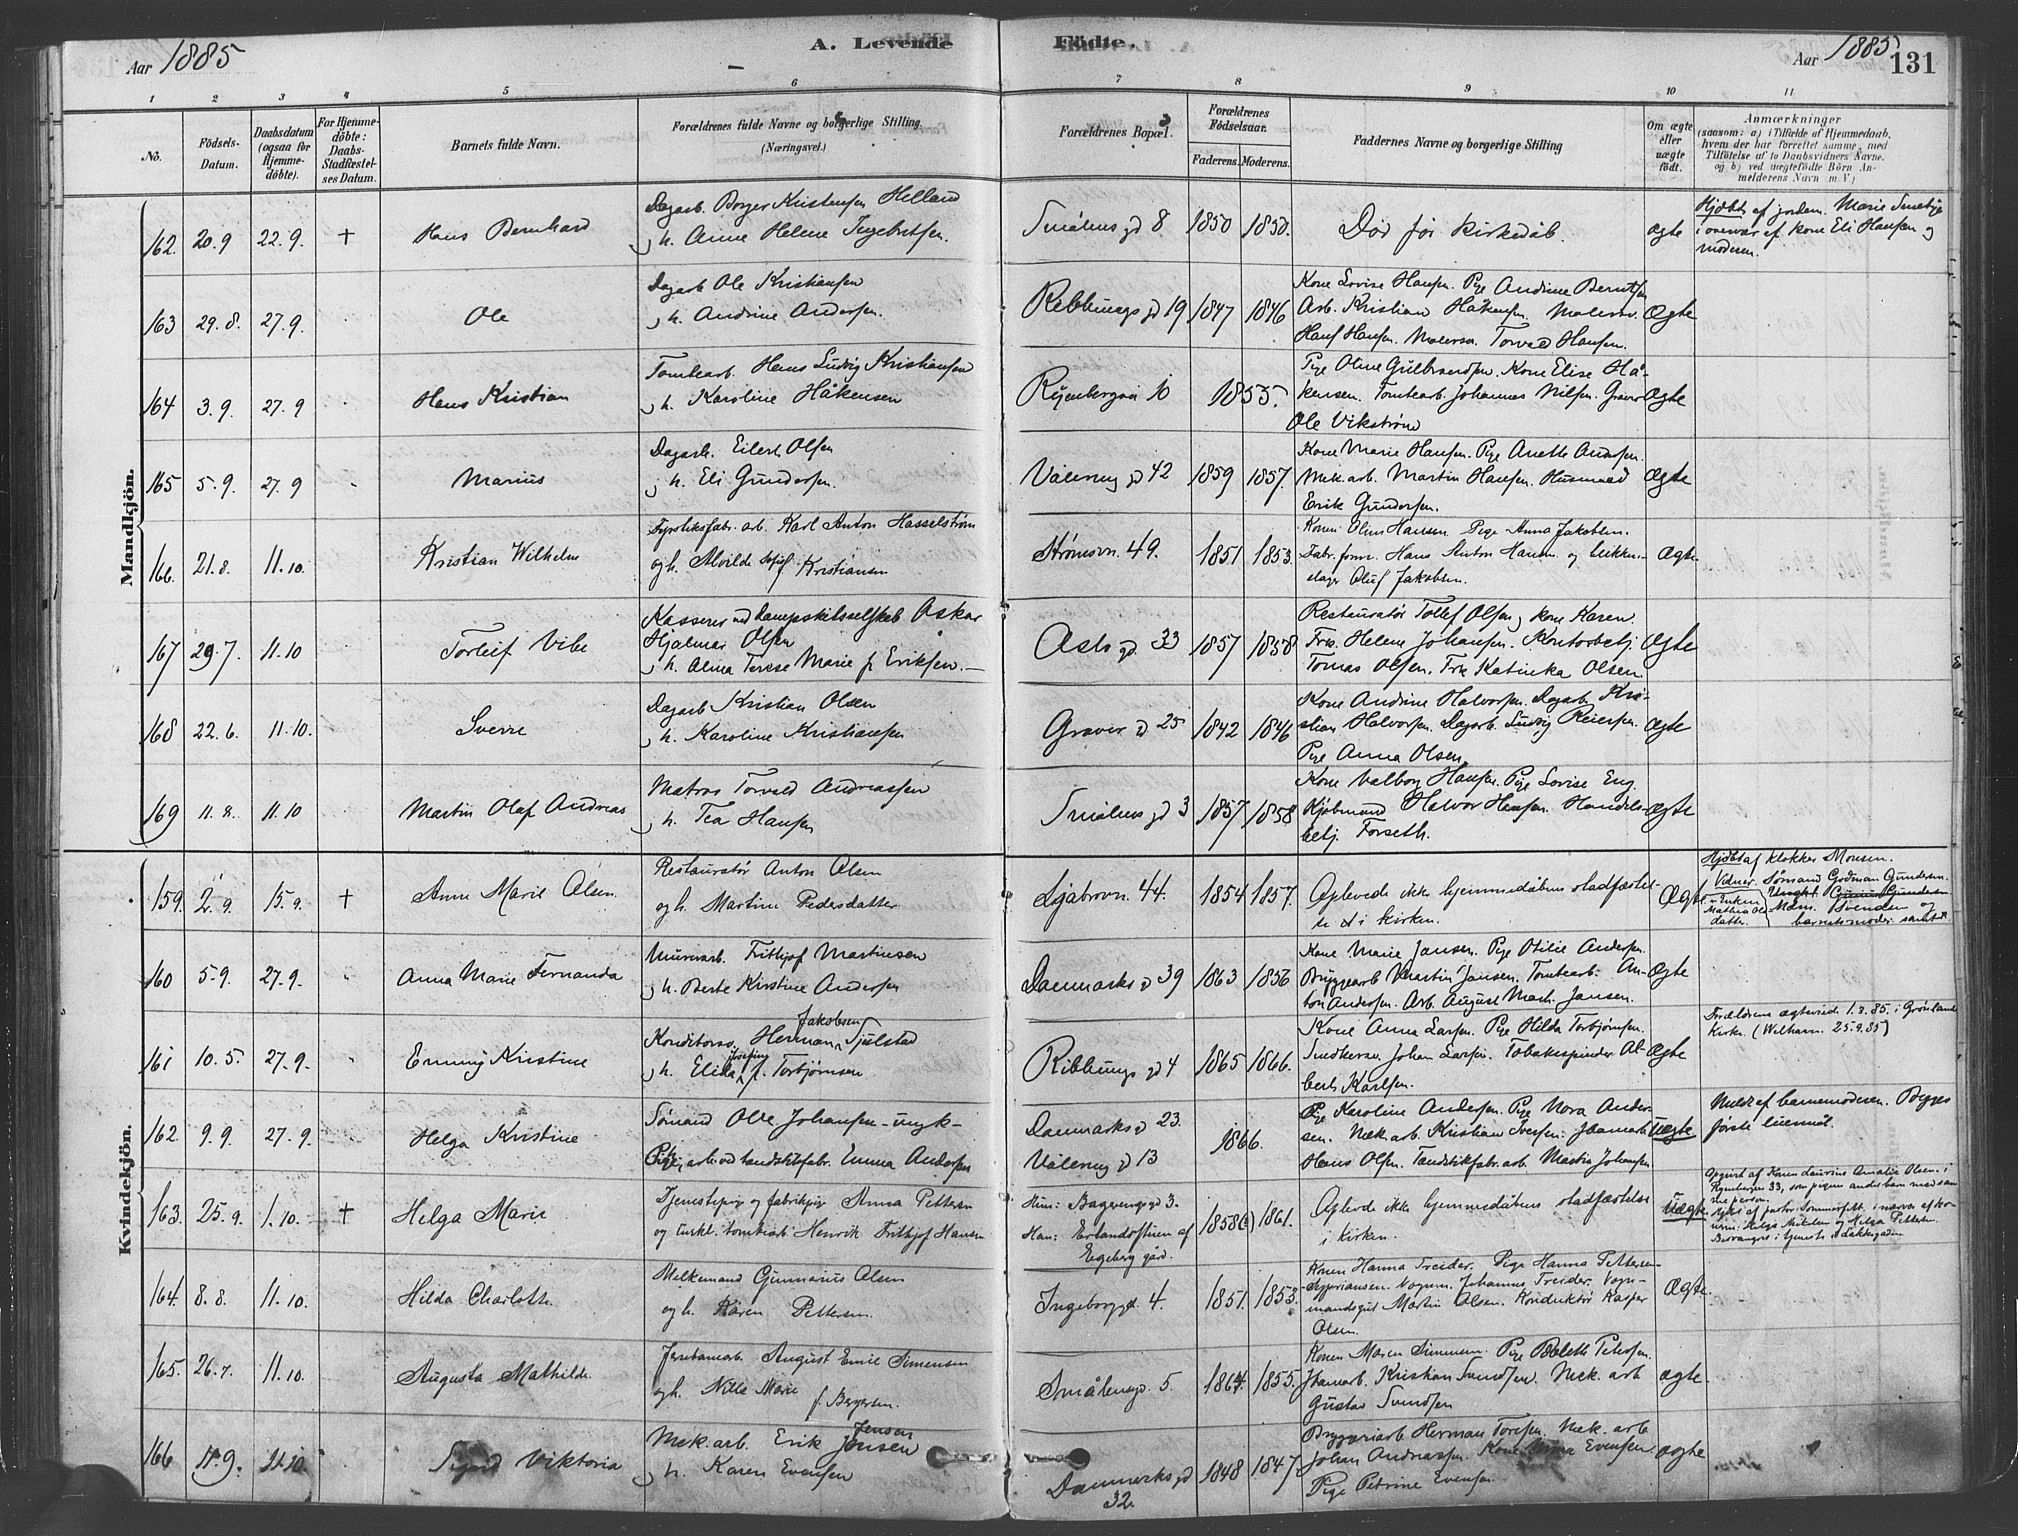 Aar 1885
A. Levende Födte.
Aar 1885 131
1 2 3 4 5 6 7 8 9 10 11
No.
Födsels-Datum.
Daabsdatum (ogsaa for Hjemmedöbte).
For Hjemmedöbte: Daabs-Stadfæstelses Datum.
Barnets fulde Navn.
Forældrenes fulde Navne og borgerlige Stilling (Næringsvei.)
Forældrenes Bopæl.
Forældrenes Födselsaar.
Faderens. Moderens.
Faddernes Navne og borgerlige Stilling
Om ægte eller uægte födt.
Anmærkninger
(saasom: a) i Tilfælde af Hjemmedaab, hvem der har forrettet samme, med Tilföielse af to Daabsvidners Navne. og b) ved uægtefödte Börn Anmelderens Navn m. V.)
Mandkjön.
162. 20.9 22.9. + Hans Bernhard
Dagarb. Borger Kristensen Helland
h. Anne Helene Ingebretsen.
Smålens gd 8 1850 1850.
Död för kirkedåb.
ægte
Hjdöbt af jordem. Marie Smebye
i overvær af kone Eli Hansen og
moderen.
163 29.8. 27.9. Ole
Dagarb Ole Kristiansen
h. Andrine Andersen.
Ribbungs gd 19 1847 1846
Kone Lovise Hansen. Pige Andrine Berntsen
Arb. Kristian Håkensen. Malersv.
Hans Hansen. Malersv. Torvald Hansen.
Ægte
164 3.9. 27.9 Hans Kristian
Tomtearb. Hans Ludvig Kristiansen
h. Karoline Håkensen
Ryenbergvei 10 1855.
Pige Oline Gulbrandsen. Kone Elise Hå-
kensen. Tomtearb. Johannes Nilsen. Graver
Ole Vikström
Ægte
165 5.9. 27.9 Marius
Dagarb. Eilert Olsen
h. Eli Gundersen.
Våleren gd 42 1859 1857.
Kone Marie Hansen. Pige Anette Andersen.
Mek. arb. Martin Hansen. Husmand
Erik Gundersen.
Ægte
166. 21.8. 11.10. Kristian Wilhelm
Fyrstiksfabr. arb. Karl Anton Hasselström
og h. Alvilde Josef. Kristiansen
Strömsvn. 49. 1851 1853.
Konen Oline Hansen. Pige Anna Jakobsen.
Fabr. form. Hans Anton Hansen og
Oluf Jakobsen.
Ægte.
167 29.7. 11.10 Torleif Vibe
Kasserer ved Dampskibsselskab Oskar
Hjalmar Olsen
h. Alma Terese Marie f. Eriksen.
Oslo gd 33 1857 1858
Restauratør Tollef Olsen og kone Karen.
Frk. Helene Johansen. Kontorbetj.
Tomas Olsen. Frk Katinka Olsen.
Ægte
168 22.6. 11.10. Sverre
Dagarb Kristian Olsen
h. Karoline Kristiansen
Graver gd 25 1842 1846
Kone Andrine Halvorsen. Dagarb Kri-
stian Halvorsen. Dagarb. Ludvig Reiersen.
Pige Anna Olsen
Ægte
169 11.8. 11.10 Martin Olaf Andreas
Matros Torvald Andreassen
h. Tea Hansen
Smålens gd 3 1857 1858
Kone Valborg Hansen. Pige Lovise Eng
Kjöbmand Halvor Hansen. Handels-
betj. Forseth.
Ægte
Kvindekjön.
159. 2.9. 15.9. + Anne Marie Olsen
Restauratör Anton Olsen
og h. Martine Pedersdatter
Ljabrovn. 44. 1854 1857.
Oplevede ikke hjemmedåbens stadfæstel-
se i kirken.
Ægte.
Hjdöbt af klokker Monsen.
Vidner: Sömand Gudman Gundersen
Mdm. Svendsen og
barnets moder samt
Enken Mathia Olsdatter
160 5.9. 27.9. Anna Marie Fernanda
Murerarb. Frithjof Martinsen
h. Berte Kirstine Andersen
Danmarks gd 39 1863 1856
Kone Marie Jansen. Pige Otilie Andersen
Bryggearb Martin Jansen. Tomtearb. An-
ton Andersen. Arb. August Jansen.
Ægte
161 10.5. 27.9. Emmy Kristine
Konditorsv. Herman Jakobsen Sjulstad
h. Elida Josefine f. Torbjörnsen
Ribbungs gd 4 1865 1866.
Kone Anna Larsen. Pige Hilda Torbjörnsen.
Smedkersv. Johan Larsen. Tobakspinder Al-
bert Karlsen.
Ægte
Forældrene ægteviede 1.2.85. i Grönlands
Kirke. (Welhavn. 25.9.85)
162. 9.9. 27.9. Helga Kristine
Sömand Ole Johansen - ungk-
Pige, arb. ved tandstikfabr. Emma Andersen
Danmarks gd 23.
Våleren gd 13
1866.
Pige Karoline Andersen. Pige Nora Ander-
sen. Mek. arb. Kristian Iversen. Jbanearb
Hans Olsen. Tandstikfabr. arb. Martin Johansen
Uægte
Meldt af barnemoderen. Begges
förste leiermål.
163. 25.9. 1.10. + Helga Marie
Tjenestepige og fabrikpige Anna Pettersen
og tomtearb. Henrik Frithjof Hansen
Hun: Bagerengsgd 3.
Han: Ertandsstuen af
Ekeberg gård.
1858(?) 1861.
Oplevede ikke hjemmedåbens stadfæstelse
i kirken.
Uægte
Opgivet af Karen Laurine Amalie Olsen i
Ryenbergvei 33, som pigens andet barn med sam-
me person.
164. 8.8. 11.10. Hilda Charlotte
Melkemand Gunnarius Olsen
og h. Karen Pettersen
Ingeborggd. 4. 1851. 1853.
Konen Hanna Treider. Pige Hanna Pettersen
Vognm. Johannes Treider. Vogn-
mandsgut Martin Olsen. Konduktör Kasper
Olsen.
Ægte.
165. 26.7. 11.10 Augusta Mathilde
Jernbanearb. August Emil Simensen
og h. Nille Marie f. Bergersen.
Smålensgd. 5. 1864. 1855.
Konen Maren Simensen. Pige Bolette Petersen.
Jbanearb. Kristian Svendsen. Mek. arb
Gustav Svendsen
Ægte.
166 11.9. 11.10 Sigrid Viktoria
Mek. arb. Erik Jensen
h. Karen Evensen
Danmarks gd
32.
1848 1847
Bryggeriarb Herman Toresen. Mek. arb
Johan Andreassen. Kone Evensen.
Pige Petrine Evensen.
Ægte